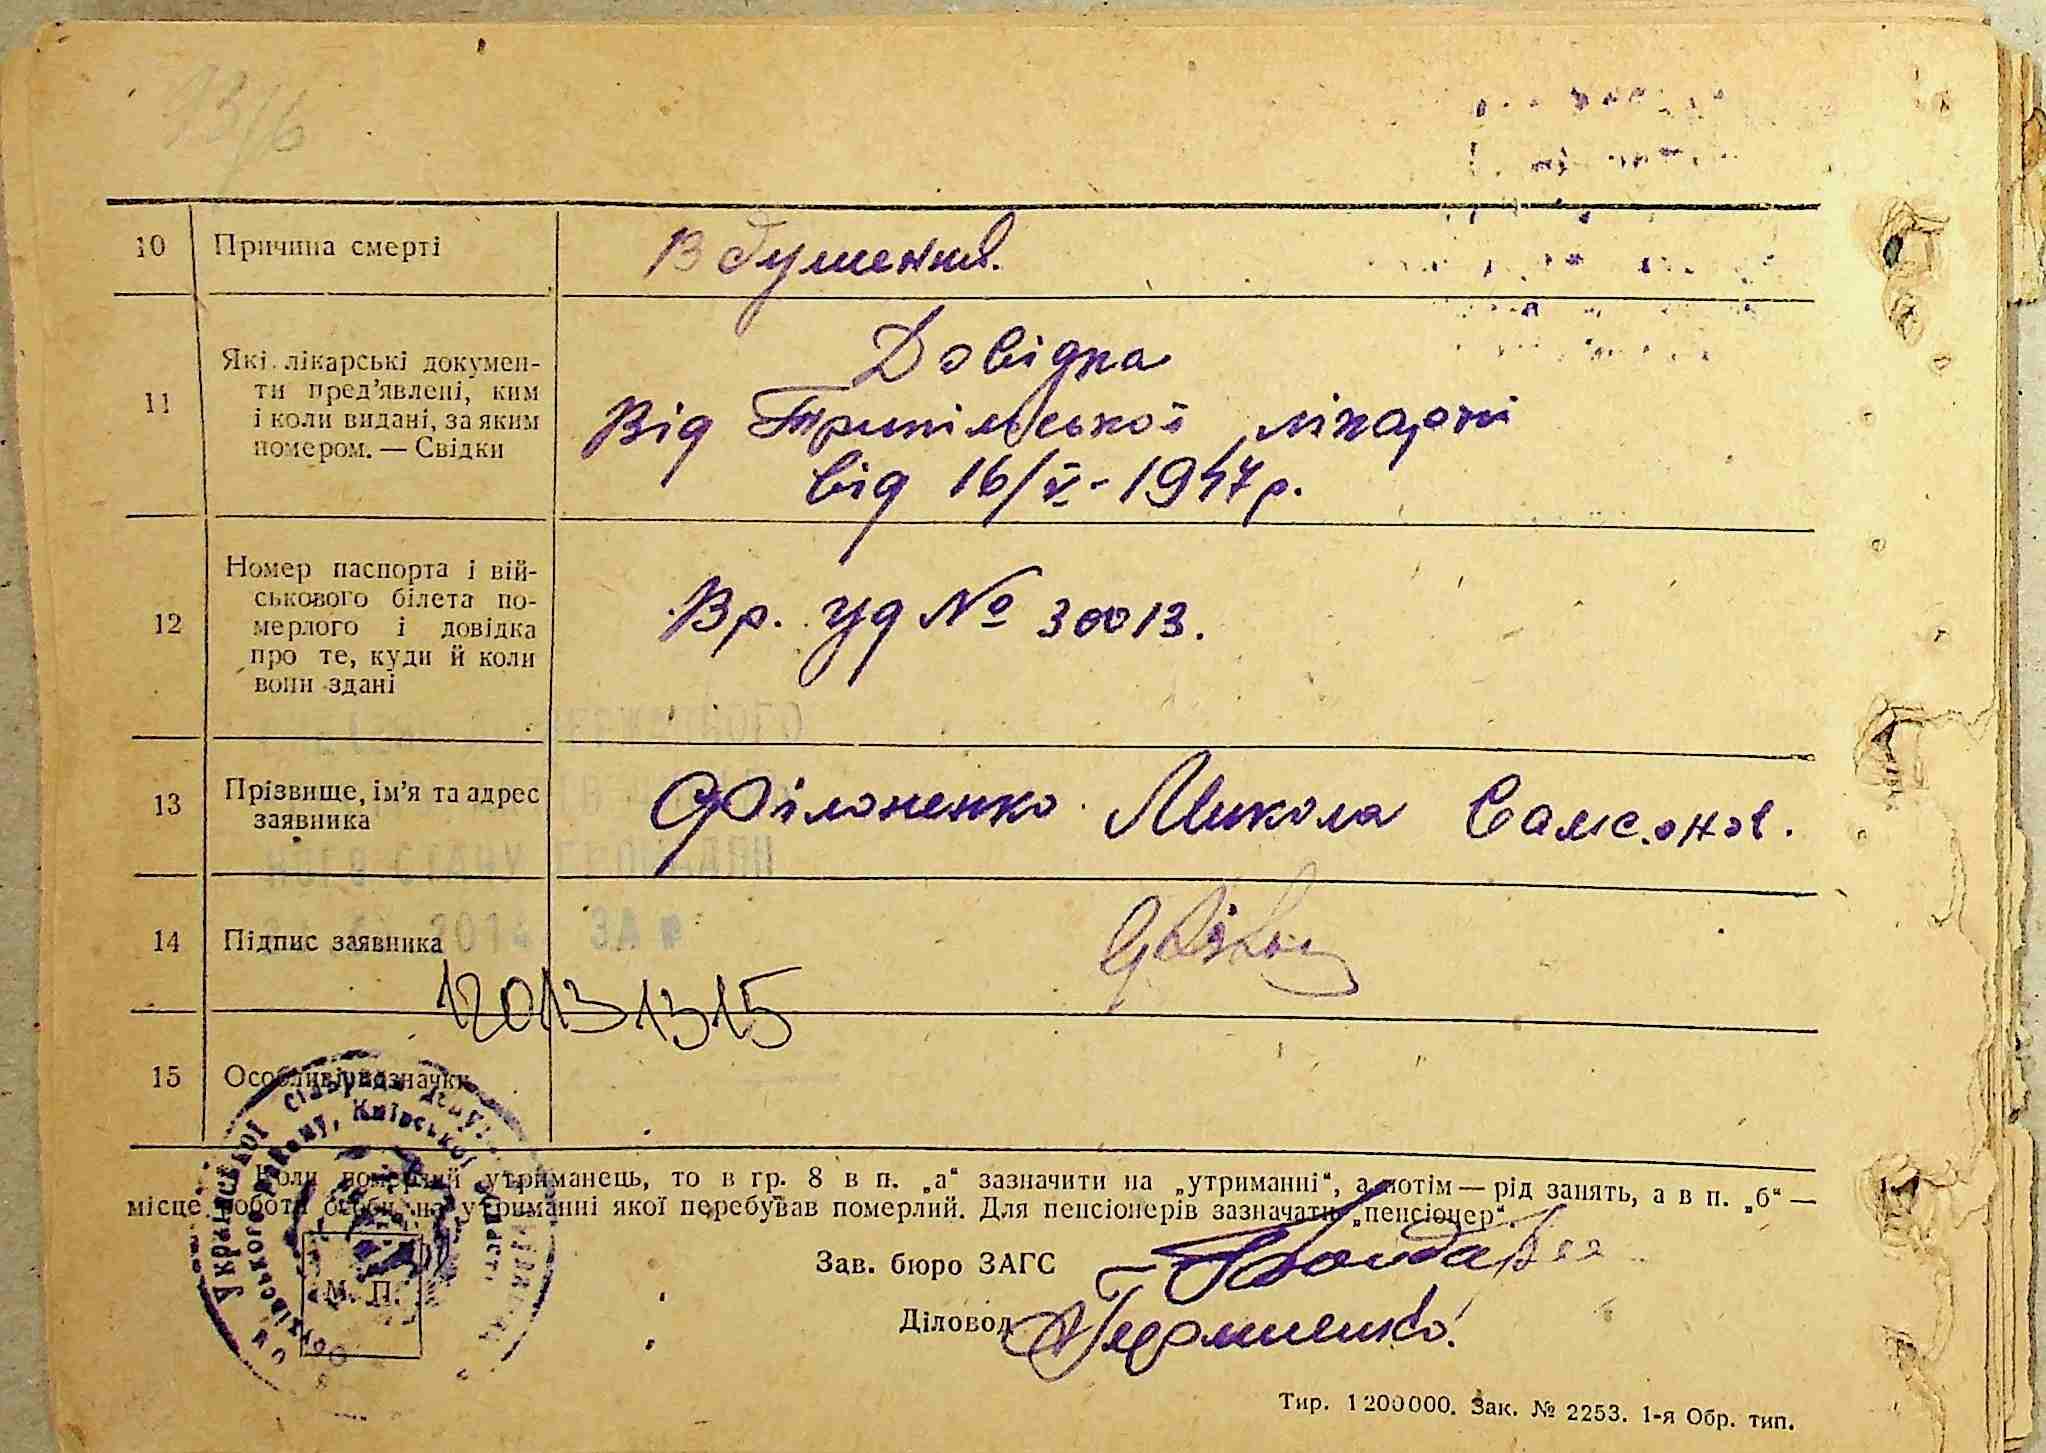 93/6
10 Причина смерті
Вдушення.
11 Які лікарські докумен-
ти пред'явлені, ким
і коли видані, за яким
номером. — Свідки
Довідка
Від Трипільської лікарні
від 16/V - 1947 р.
12 Номер паспорта і вій-
ськового білета по-
мерлого і довідка
про те, куди й коли
вони здані
Вр. уд № 30013.
13 Прізвище, ім'я та адрес
заявника
Філоненко Микола Самсонов.
14 Підпис заявника
12013 1315
15 Особливі відзначки
Коли померлий утриманець, то в гр. 8 в п. „а“ зазначити на „утриманні“, а потім — рід занять, а в п. „б“ —
місце роботи особи, на утриманні якої перебував померлий. Для пенсіонерів зазначати „пенсіонер“.
М. П.
Зав. бюро ЗАГС
Діловод
Тир. 1200000. Зак. № 2253. 1-я Обр. тип.